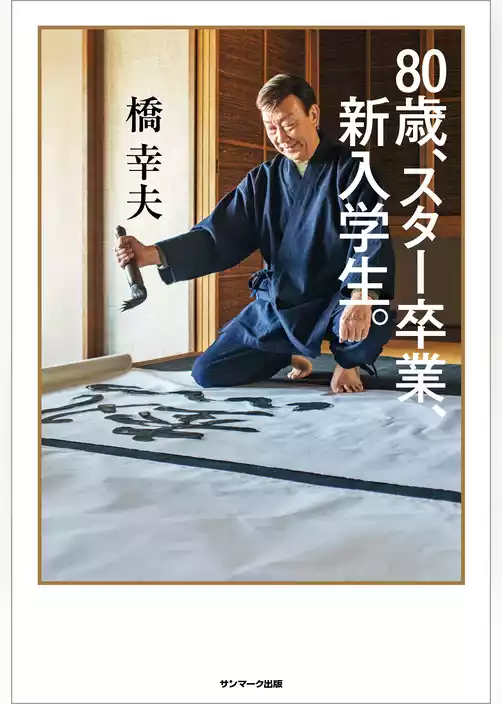 80歳、スター卒業、
新入学生。
橋 幸夫
サンマーク出版